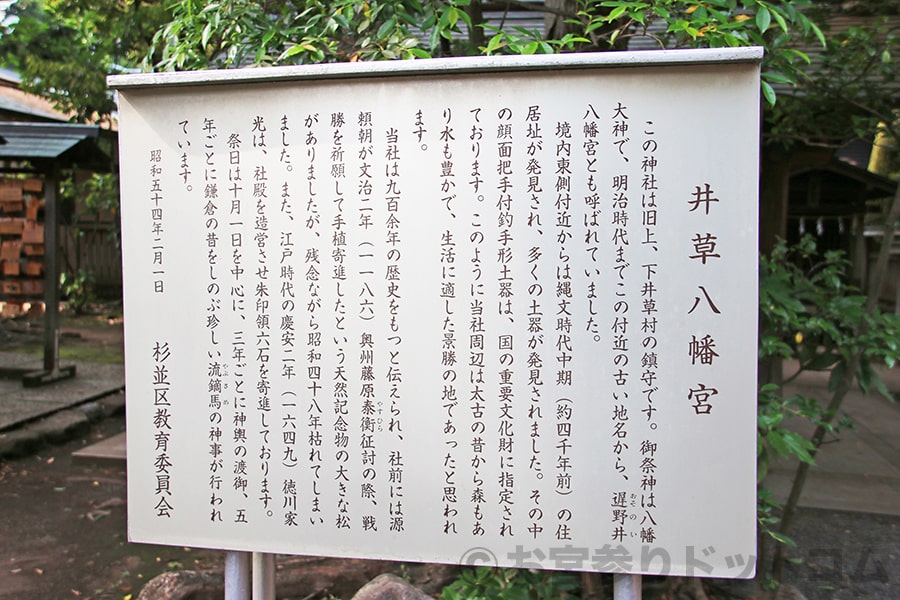 井草八幡宮
この神社は旧上、下井草村の鎮守です。御祭神は八幡
大神で、明治時代までこの付近の古い地名から、遅野井
おそのい
八幡宮とも呼ばれていました。
境内東側付近からは縄文時代中期（約四千年前）の住
居址が発見され、多くの土器が発見されました。その中
の顔面把手付釣手形土器は、国の重要文化財に指定され
ております。このように当社周辺は太古の昔から森もあ
り水も豊かで、生活に適した景勝の地であったと思われ
ます。
当社は九百余年の歴史をもつと伝えられ、社前には源
頼朝が文治二年（一一八六）奥州藤原泰衡征討の際、戦
やすひら
勝を祈願して手植寄進したという天然記念物の大きな松
がありましたが、残念ながら昭和四十八年枯れてしまい
ました。また、江戸時代の慶安二年（一六四九）徳川家
光は、社殿を造営させ朱印領六石を寄進しております。
祭日は十月一日を中心に、三年ごとに神輿の渡御、五
年ごとに鎌倉の昔をしのぶ珍しい流鏑馬の神事が行われ
やぶさめ
ています。
昭和五十四年二月一日
杉並区教育委員会
©お宮参りドットコム